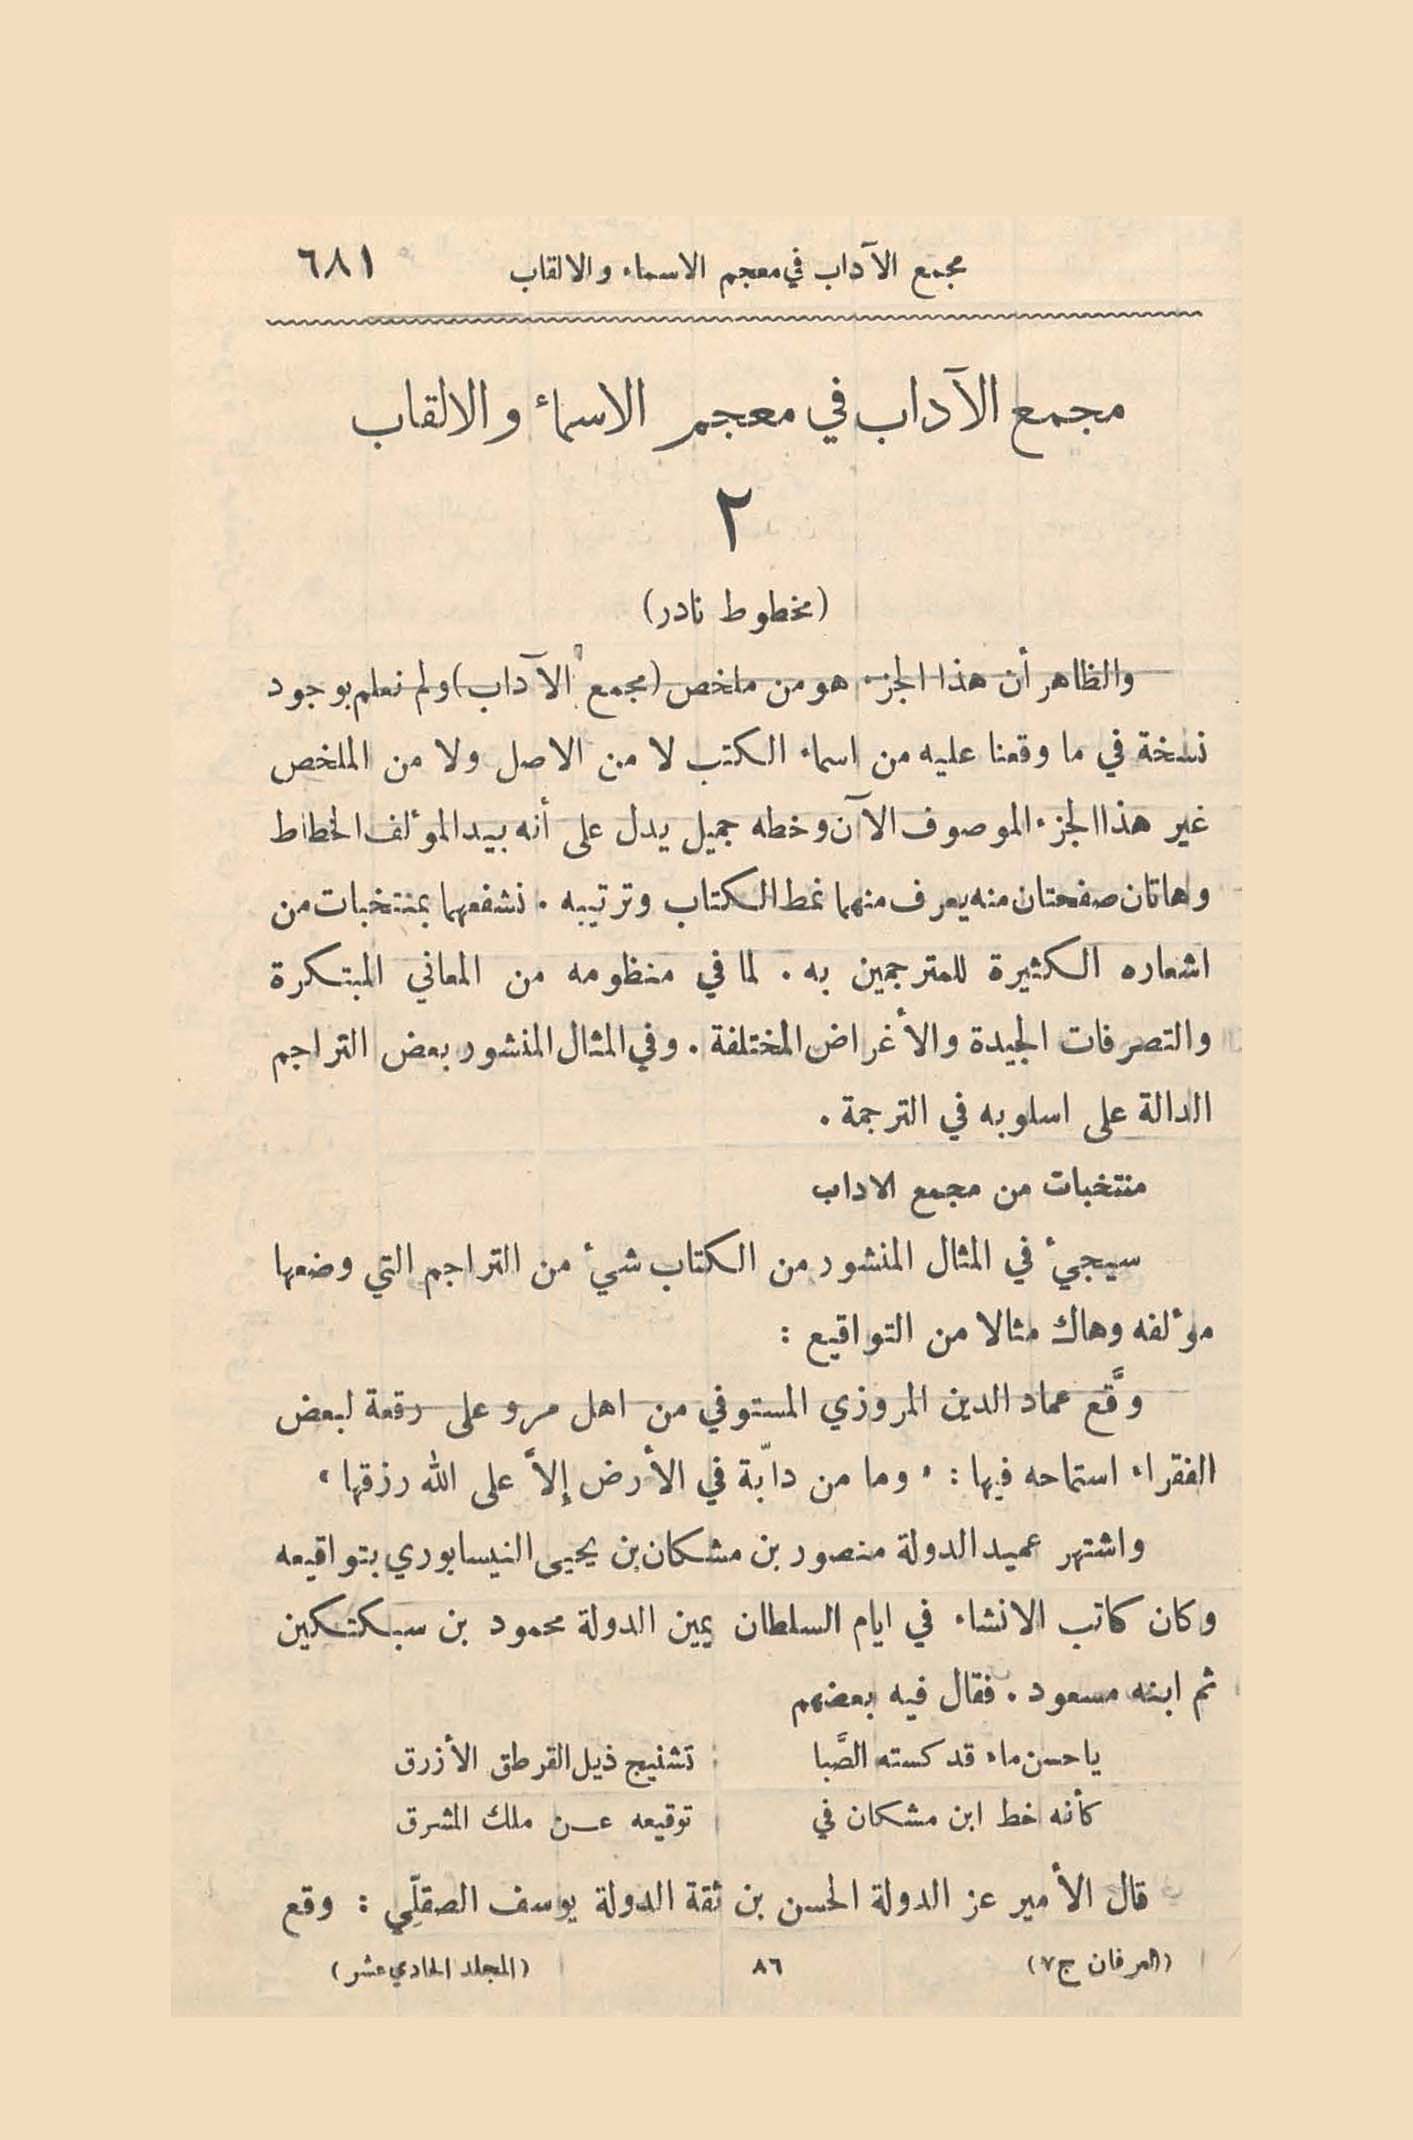 مجمع الآداب في معجم الاسماء والالقاب ٦٨١
مجمع الآداب في معجم الاسماء والالقاب
٢
(مخطوط نادر)
والظاهر أن هذا الجزء هو من ملخص (مجمع الآداب) ولم نعلم بوجود
نسخة في ما وقعنا عليه من اسماء الكتب لا من الاصل ولا من الملخص
غير هذا الجزء الموصوف الآن وخطه جميل يدل على أنه بيد المؤلف الخطاط
وهاتان صفحتان منه يعرف منهما نمط الكتاب وترتيبه . نشفعهما بمنتخبات من
اشعاره الكثيرة للمترجمين به . لما في منظومه من المعاني المبتكرة
والتصرفات الجيدة والأغراض المختلفة . وفي المثال المنشور بعض التراجم
الدالة على اسلوبه في الترجمة .
منتخبات من مجمع الاداب
سيجيء في المثال المنشور من الكتاب شيء من التراجم التي وضعها
مؤلفه وهاك مثالا من التواقيع :
وقَّع عماد الدين المروزي المستوفي من اهل مرو على رقعة لبعض
الفقراء استماحه فيها : « وما من دابّة في الأرض إلاَّ على الله رزقها »
واشتهر عميد الدولة منصور بن مشكان بن يحيى النيسابوري بتواقيعه
وكان كاتب الانشاء في ايام السلطان يمين الدولة محمود بن سبكتكين
ثم ابنه مسعود . فقال فيه بعضهم
يا حسن ماء قد كسته الصَّبا تشنيج ذيل القرطق الأزرق
كأنه خط ابن مشكان في توقيعه عن ملك المشرق
قال الأمير عز الدولة الحسن بن ثقة الدولة يوسف الصقلِّي : وقع
(العرفان ج٧) ٨٦ (المجلد الحادي عشر)